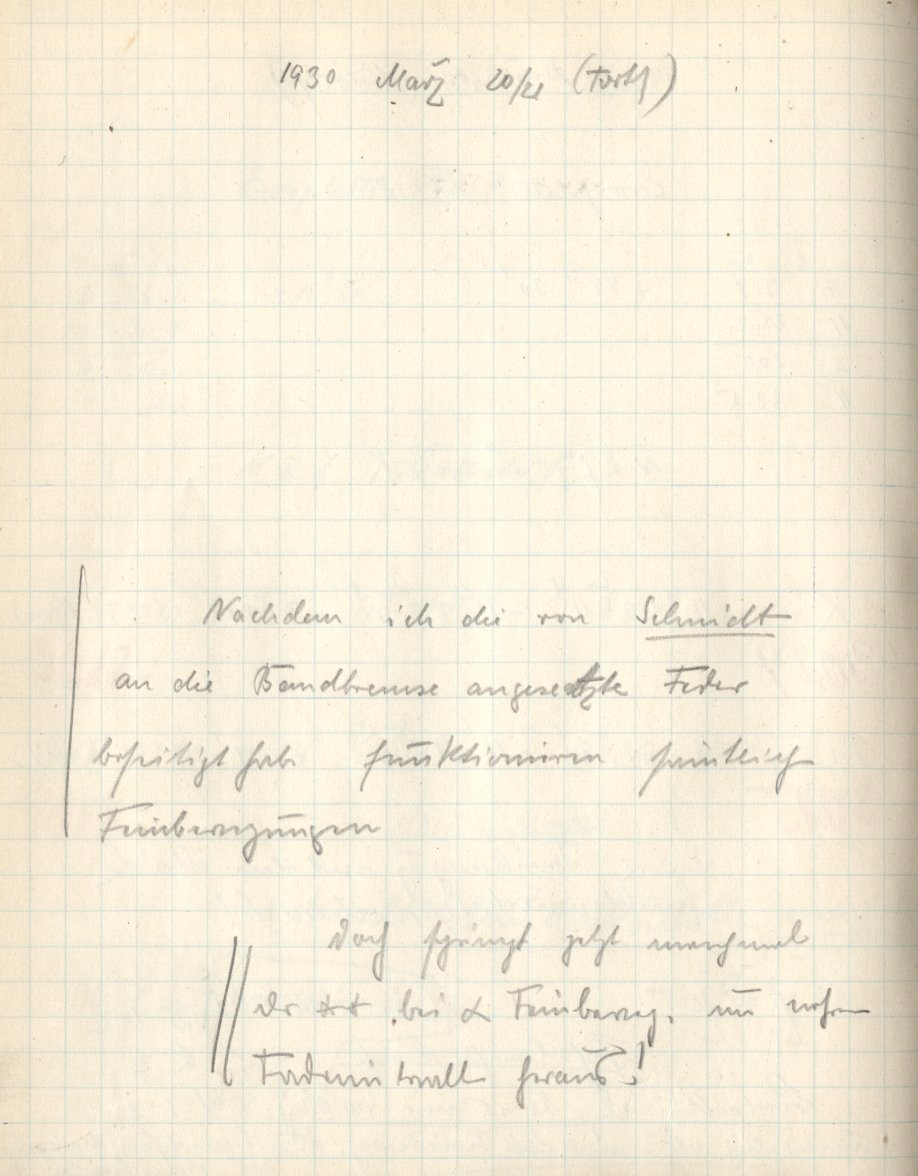 1930 März 20/21 (Forts)
Nachdem ich die von Schmidt
an die Bandbremse angesetzte Feder
beseitigt habe funktionieren sämtlich
Feinbewegungen
Doch springt jetzt manchmal
der bei α Feinbeweg. um
Fadenintervall heraus!